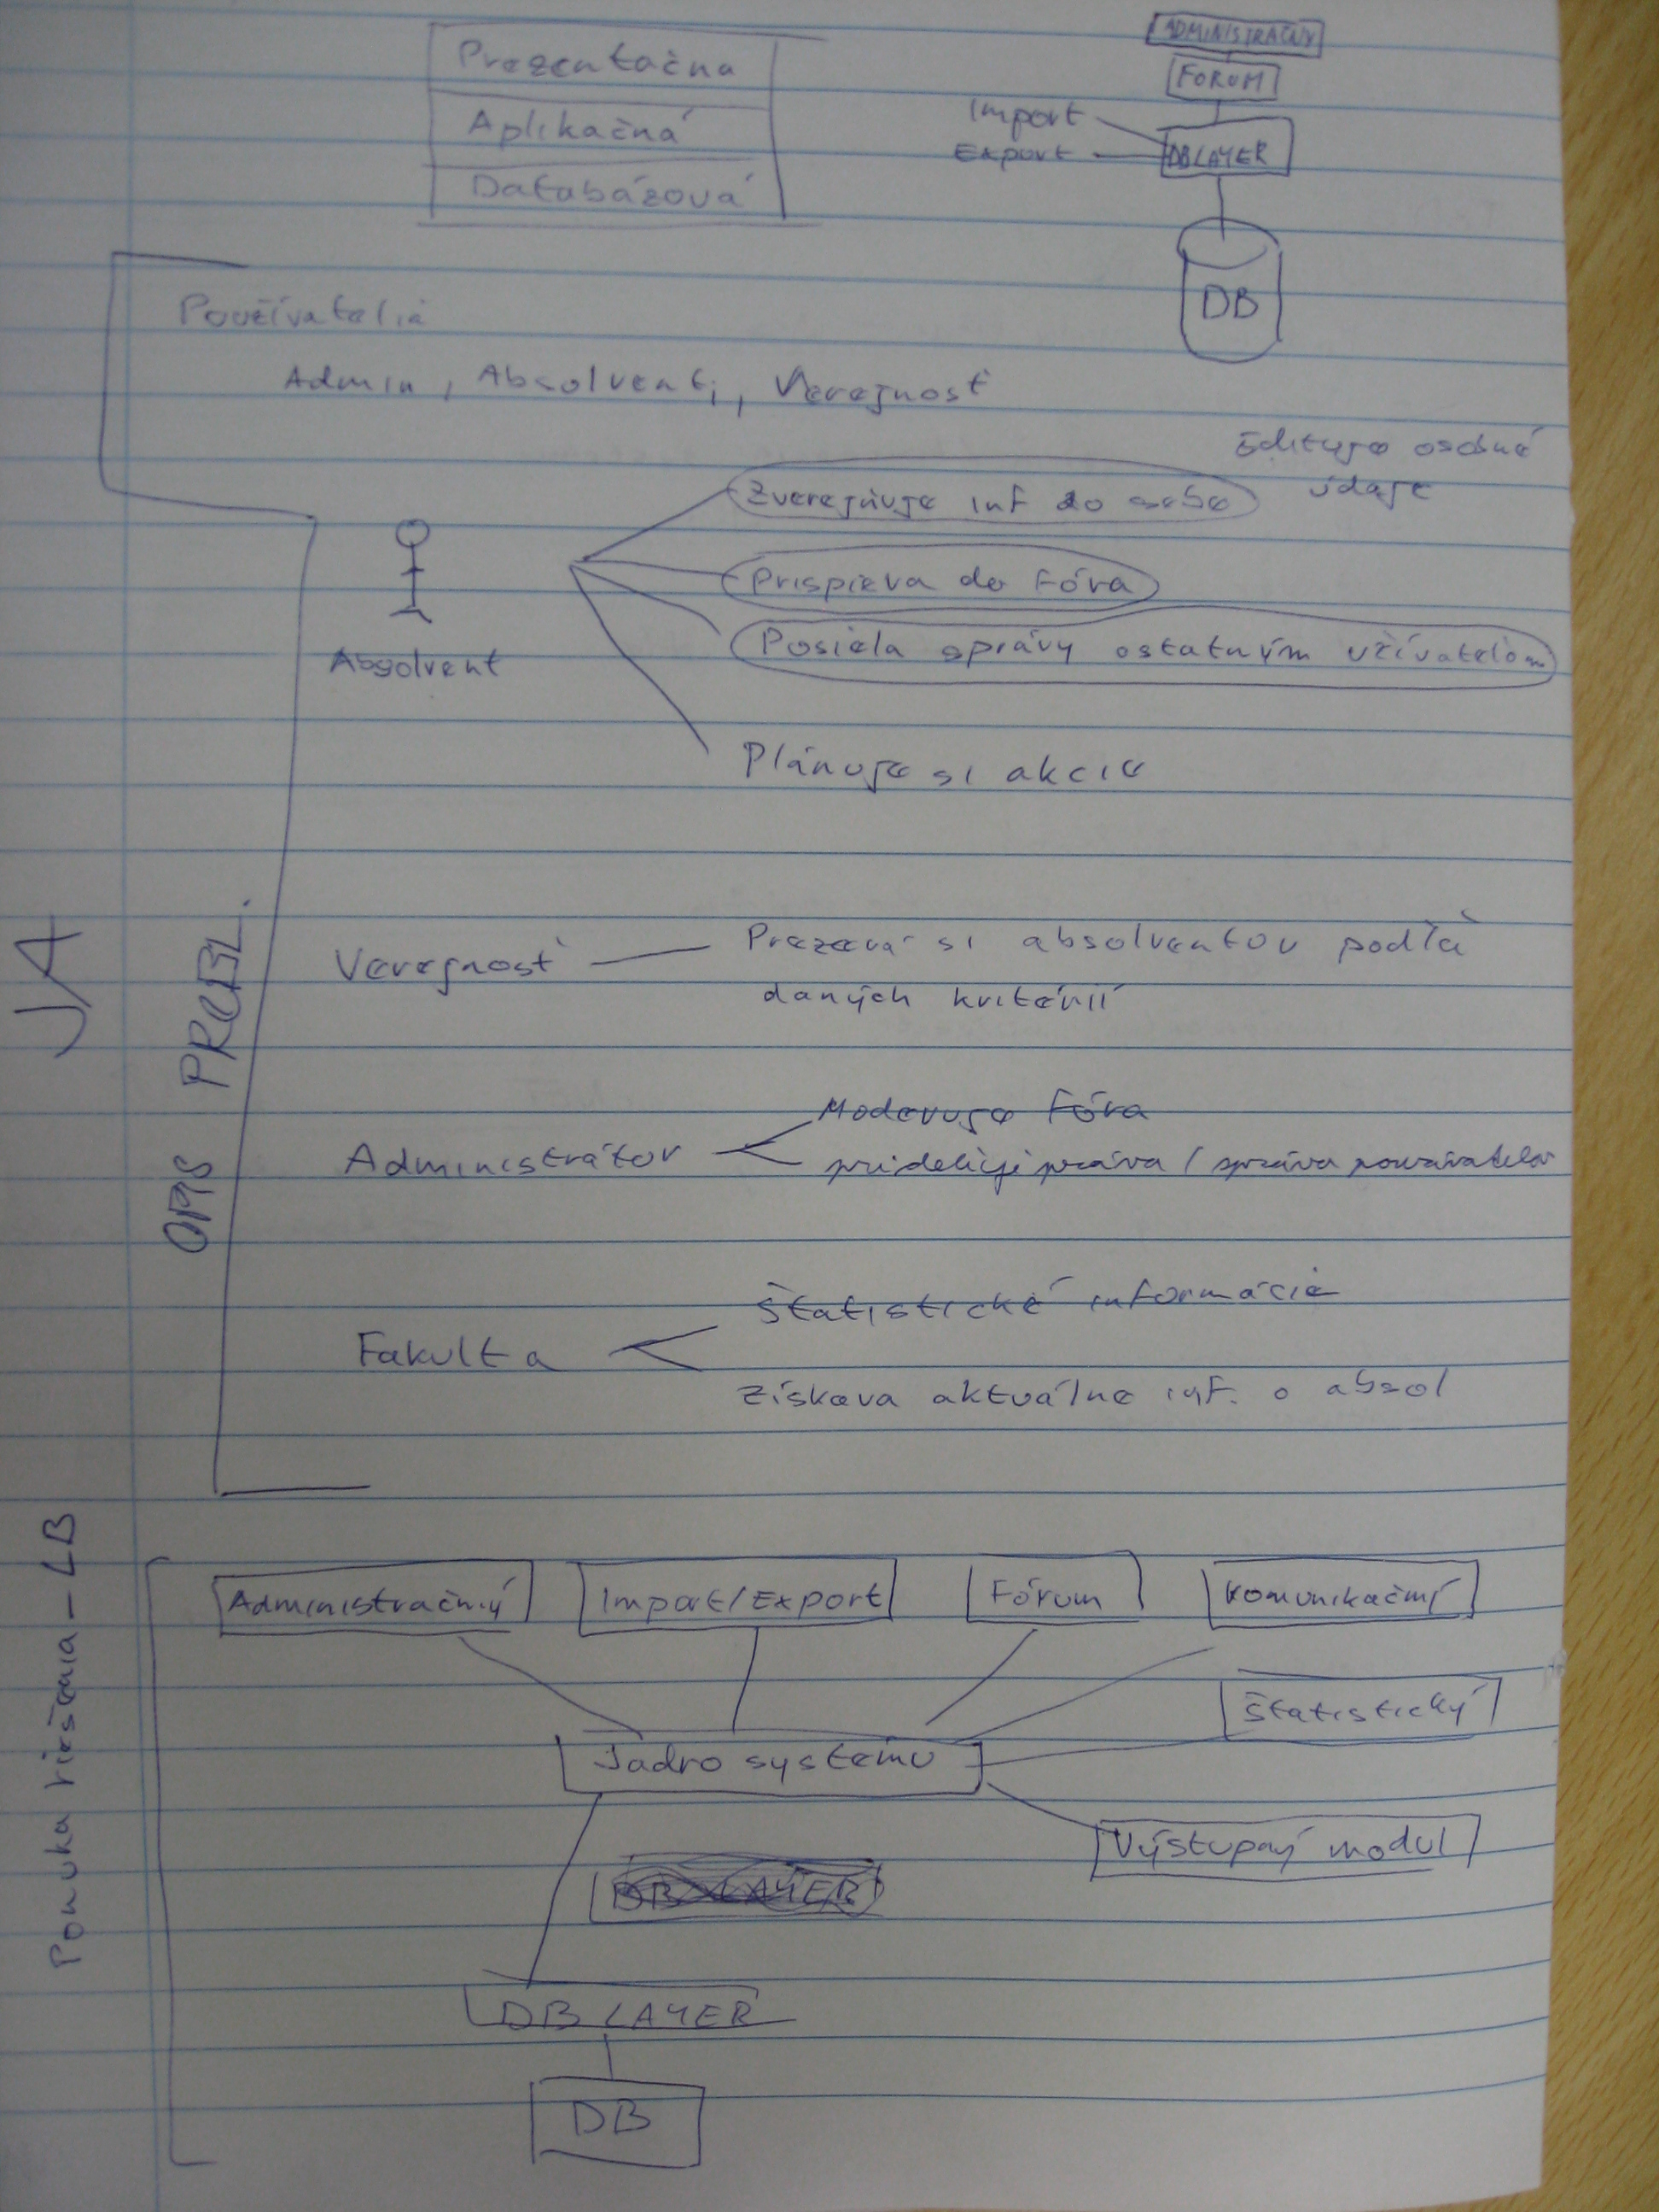 Prezentačna
Aplikačná
Databázová
ADMINISTRAČNÝ
FORUM
Import
Export
DB LAYER
DB
Používatelia
Admin, Absolventi, Verejnosť
Edituje osobné
údaje
Zverejňuje inf do seba
Prispieva do Fóra
Posiela správy ostatným užívatelom
Absolvent
Plánuje si akcie
JA
OPIS PROBL.
Verejnosť
Prezerá si absolventov podľa
daných kritérií
Administrátor
Moderuje Fóra
prideľuje práva / správa
Fakulta
Štatistické informácie
Získava aktuálne inf. o absol
Ponuka riešenia - LB
Administračný
Import/Export
Fórum
Komunikačný
Štatistický
Jadro systemu
Výstupný modul
DB LAYER
DB LAYER
DB